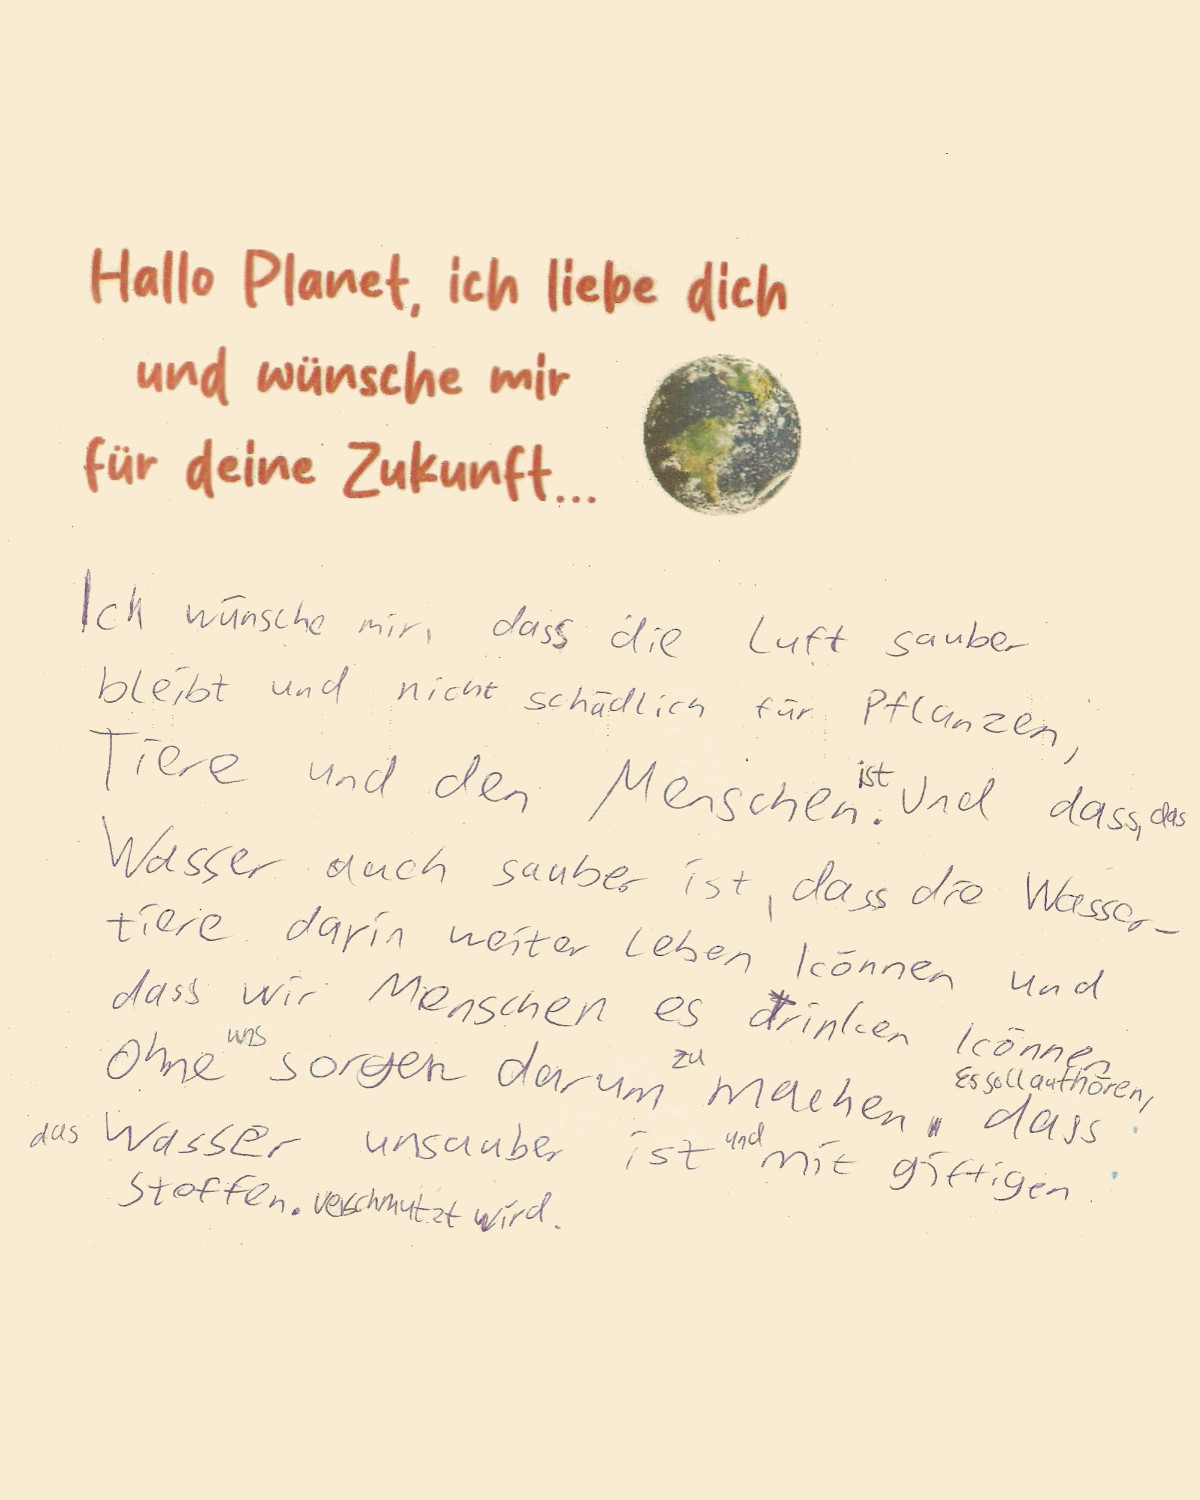 Hallo Planet, ich liebe dich
und wünsche mir
für deine Zukunft...
Ich wünsche mir, dass die Luft sauber
bleibt und nicht schädlich für Pflanzen,
Tiere und den Menschen ist. Und dass, das
Wasser auch sauber ist, dass die Wasser-
tiere darin weiter leben können und
dass wir Menschen es trinken können
ohne uns sorgen darum zu machen. Es soll aufhören,
dass
das Wasser unsauber ist und mit giftigen
Stoffen. verschmutzt wird.